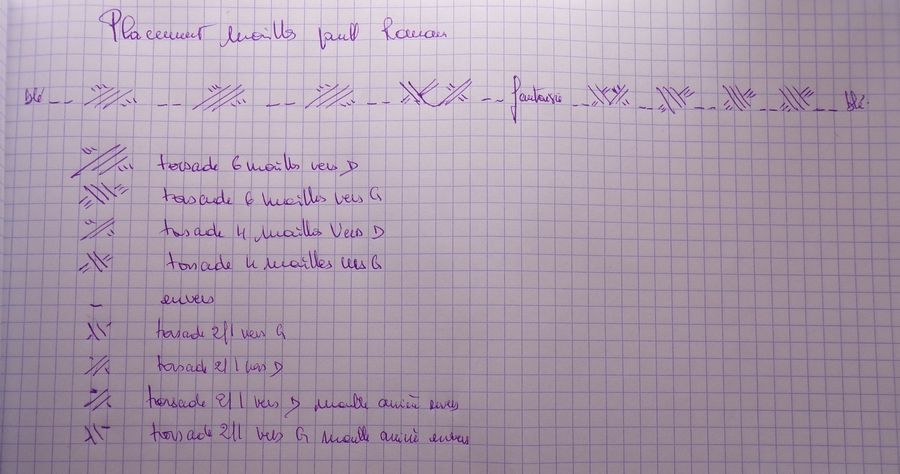 Placement mailles pull Roman
blé _ _ _ _ _ _ _ _ _ _ fantaisie _ _ _ _ _ _ blé
torsade 6 mailles vers D
torsade 6 mailles vers G
torsade 4 mailles vers D
torsade 4 mailles vers G
_ envers
torsade 2/1 vers G
torsade 2/1 vers D
torsade 2/1 vers D maille envers
torsade 2/1 vers G maille envers